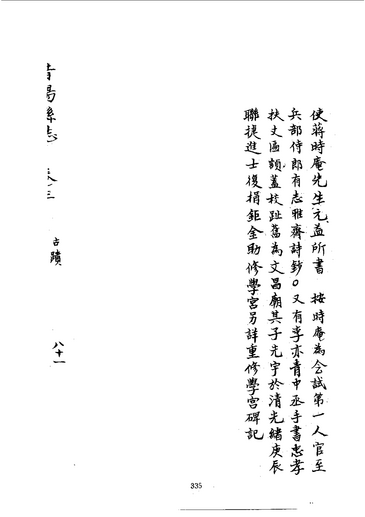 使蔣時庵先生元益所書 按時庵為会試第一人官至
兵部侍郎有志雅齋詩鈔○又有李亦青中丞手書忠孝
扶丈匾額蓋校趾舊為文昌廟其子先宇於清光緒庚辰
聯捷進士後捐鉅金助修學宮另詳重修學宮碑記
縣志
古蹟
八十一
335